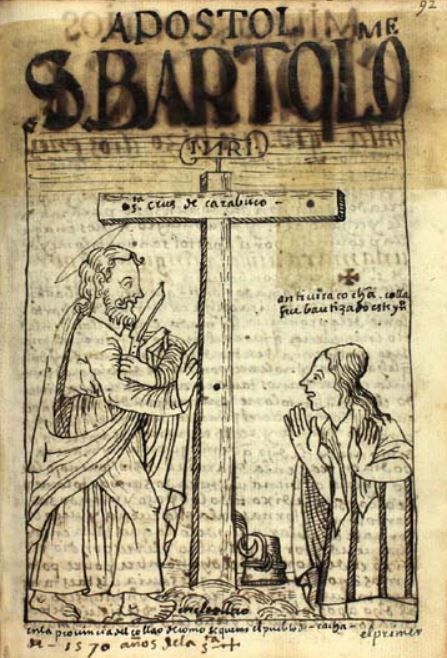 92
APOSTOL
S. BARTOLOME
INRI
s.ta crus de carabuco -
anti uira cocha. colla
fue bautizado este yn
en el collao
en la prouincia del collao de como se quemo el pueblo de - cacha - el primer
de - 1570 años de la